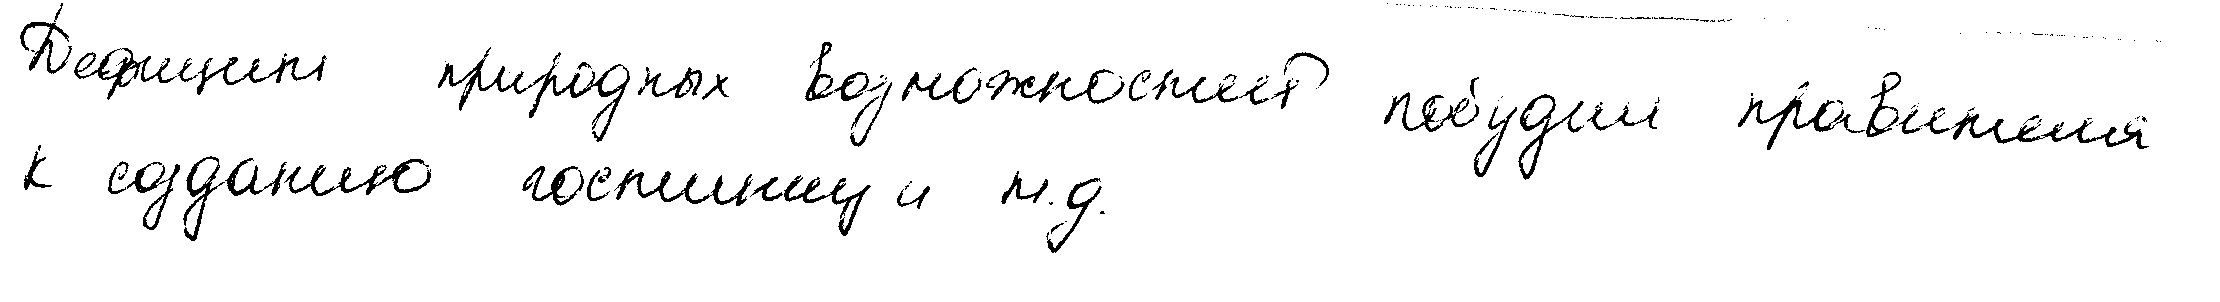 Дефицит природных возможностей побудил правителя
к созданию гостиниц и т.д.